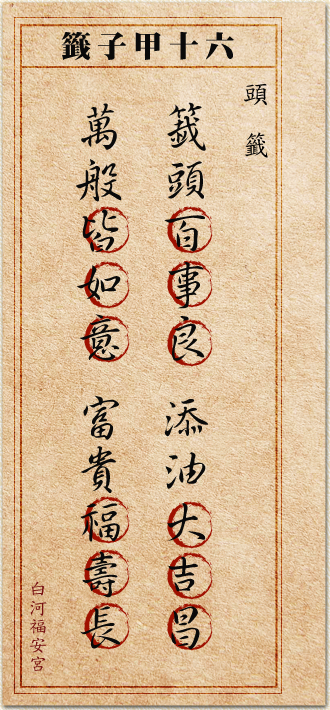 六十甲子籤
頭籤
籤頭百事良
添油大吉昌
萬般皆如意
富貴福壽長
白河福安宮